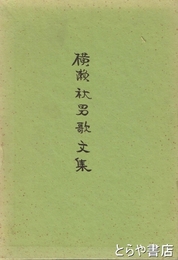 横瀬秋男歌文集
とらや書店